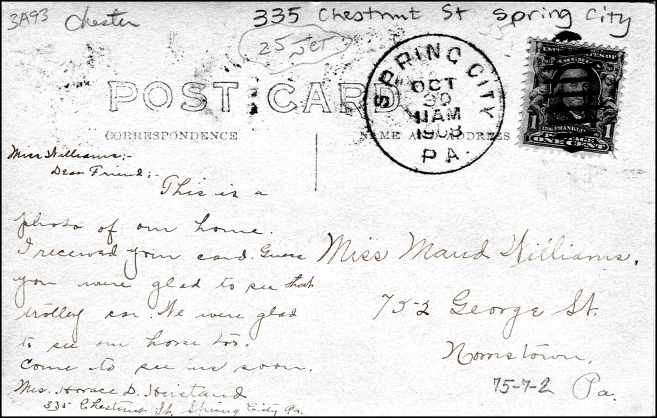 3A93 Chester
335 Chestnut St Spring City
25 set
POST CARD
SPRING CITY
OCT
30
11AM
1908
PA.
1 ONE CENT 1
CORRESPONDENCE
NAME AND ADDRESS
Miss Williams;-
Dear Friend;-
This is a
photo of our home.
I received your card. Guess
you were glad to see that
trolley car. We were glad
to see our horse too.
Come to see us soon.
Mrs. Horace D. Heistand
335 Chestnut St. Spring City Pa.
Miss Maud Williams,
752 George St.
Norristown,
Pa.
75-7-2